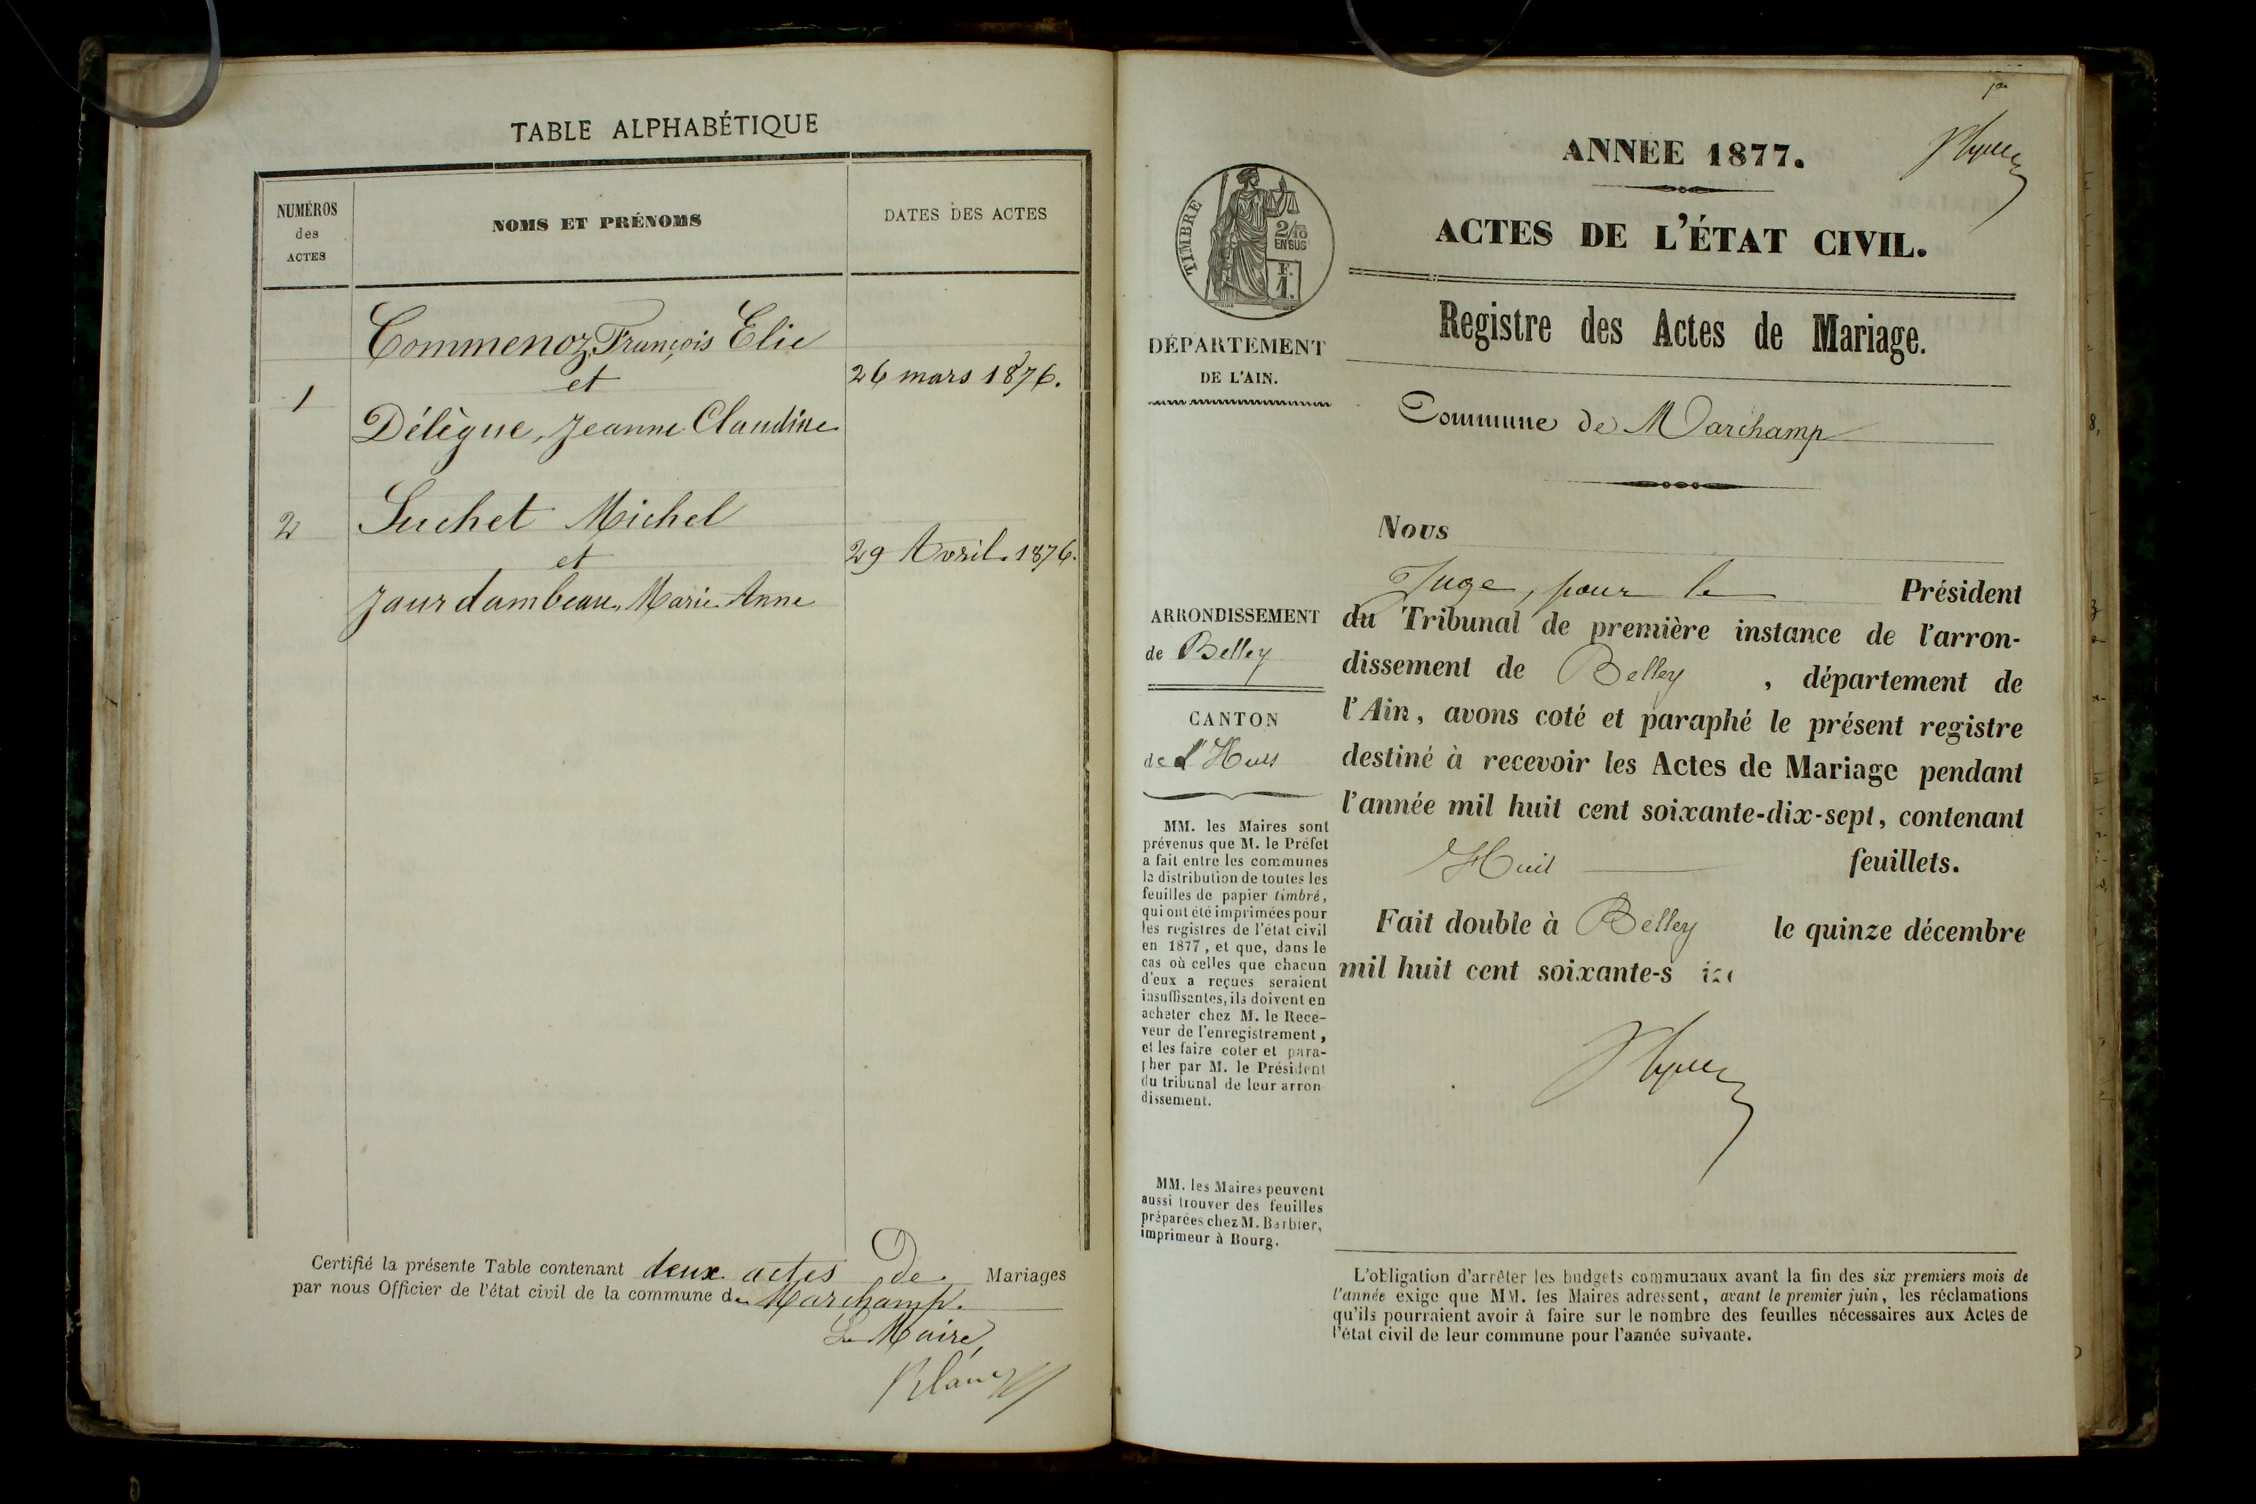 TABLE ALPHABÉTIQUE
NUMÉROS
des
ACTES
NOMS ET PRÉNOMS
DATES DES ACTES
1
Commenoz, François Elie
et
Délègue, Jeanne Claudine
26 mars 1876.
2
Suchet Michel
et
Jaurdambeau, Marie Anne
29 Avril. 1876.
Certifié la présente Table contenant deux actes De Mariages
par nous Officier de l'état civil de la commune de Marchamp.
Le Maire,
ANNÉE 1877.
TIMBRE
2/10
EN SUS
F.
1.
ACTES DE L'ÉTAT CIVIL.
Registre des Actes de Mariage.
DÉPARTEMENT
DE L'AIN.
Commune de Marchamp
ARRONDISSEMENT
de Belley
CANTON
de l'Huis
MM. les Maires sont
prévenus que M. le Préfet
a fait entre les communes
la distribution de toutes les
feuilles de papier timbré,
qui ont été imprimées pour
les registres de l'état civil
en 1877, et que, dans le
cas où celles que chacun
d'eux a reçues seraient
insuffisantes, ils doivent en
acheter chez M. le Rece-
veur de l'enregistrement,
et les faire coter et para-
pher par M. le Président
du tribunal de leur arron
dissement.
MM. les Maires peuvent
aussi trouver des feuilles
préparées chez M. Barbier,
imprimeur à Bourg.
Nous
Juge, pour le Président
du Tribunal de première instance de l'arron-
dissement de Belley, département de
l'Ain, avons coté et paraphé le présent registre
destiné à recevoir les Actes de Mariage pendant
l'année mil huit cent soixante-dix-sept, contenant
Huit feuillets.
Fait double à Belley le quinze décembre
mil huit cent soixante-s ize
L'obligation d'arrêter les budgets communaux avant la fin des six premiers mois de
l'année exige que MM. les Maires adressent, avant le premier juin, les réclamations
qu'ils pourraient avoir à faire sur le nombre des feuilles nécessaires aux Actes de
l'état civil de leur commune pour l'année suivante.